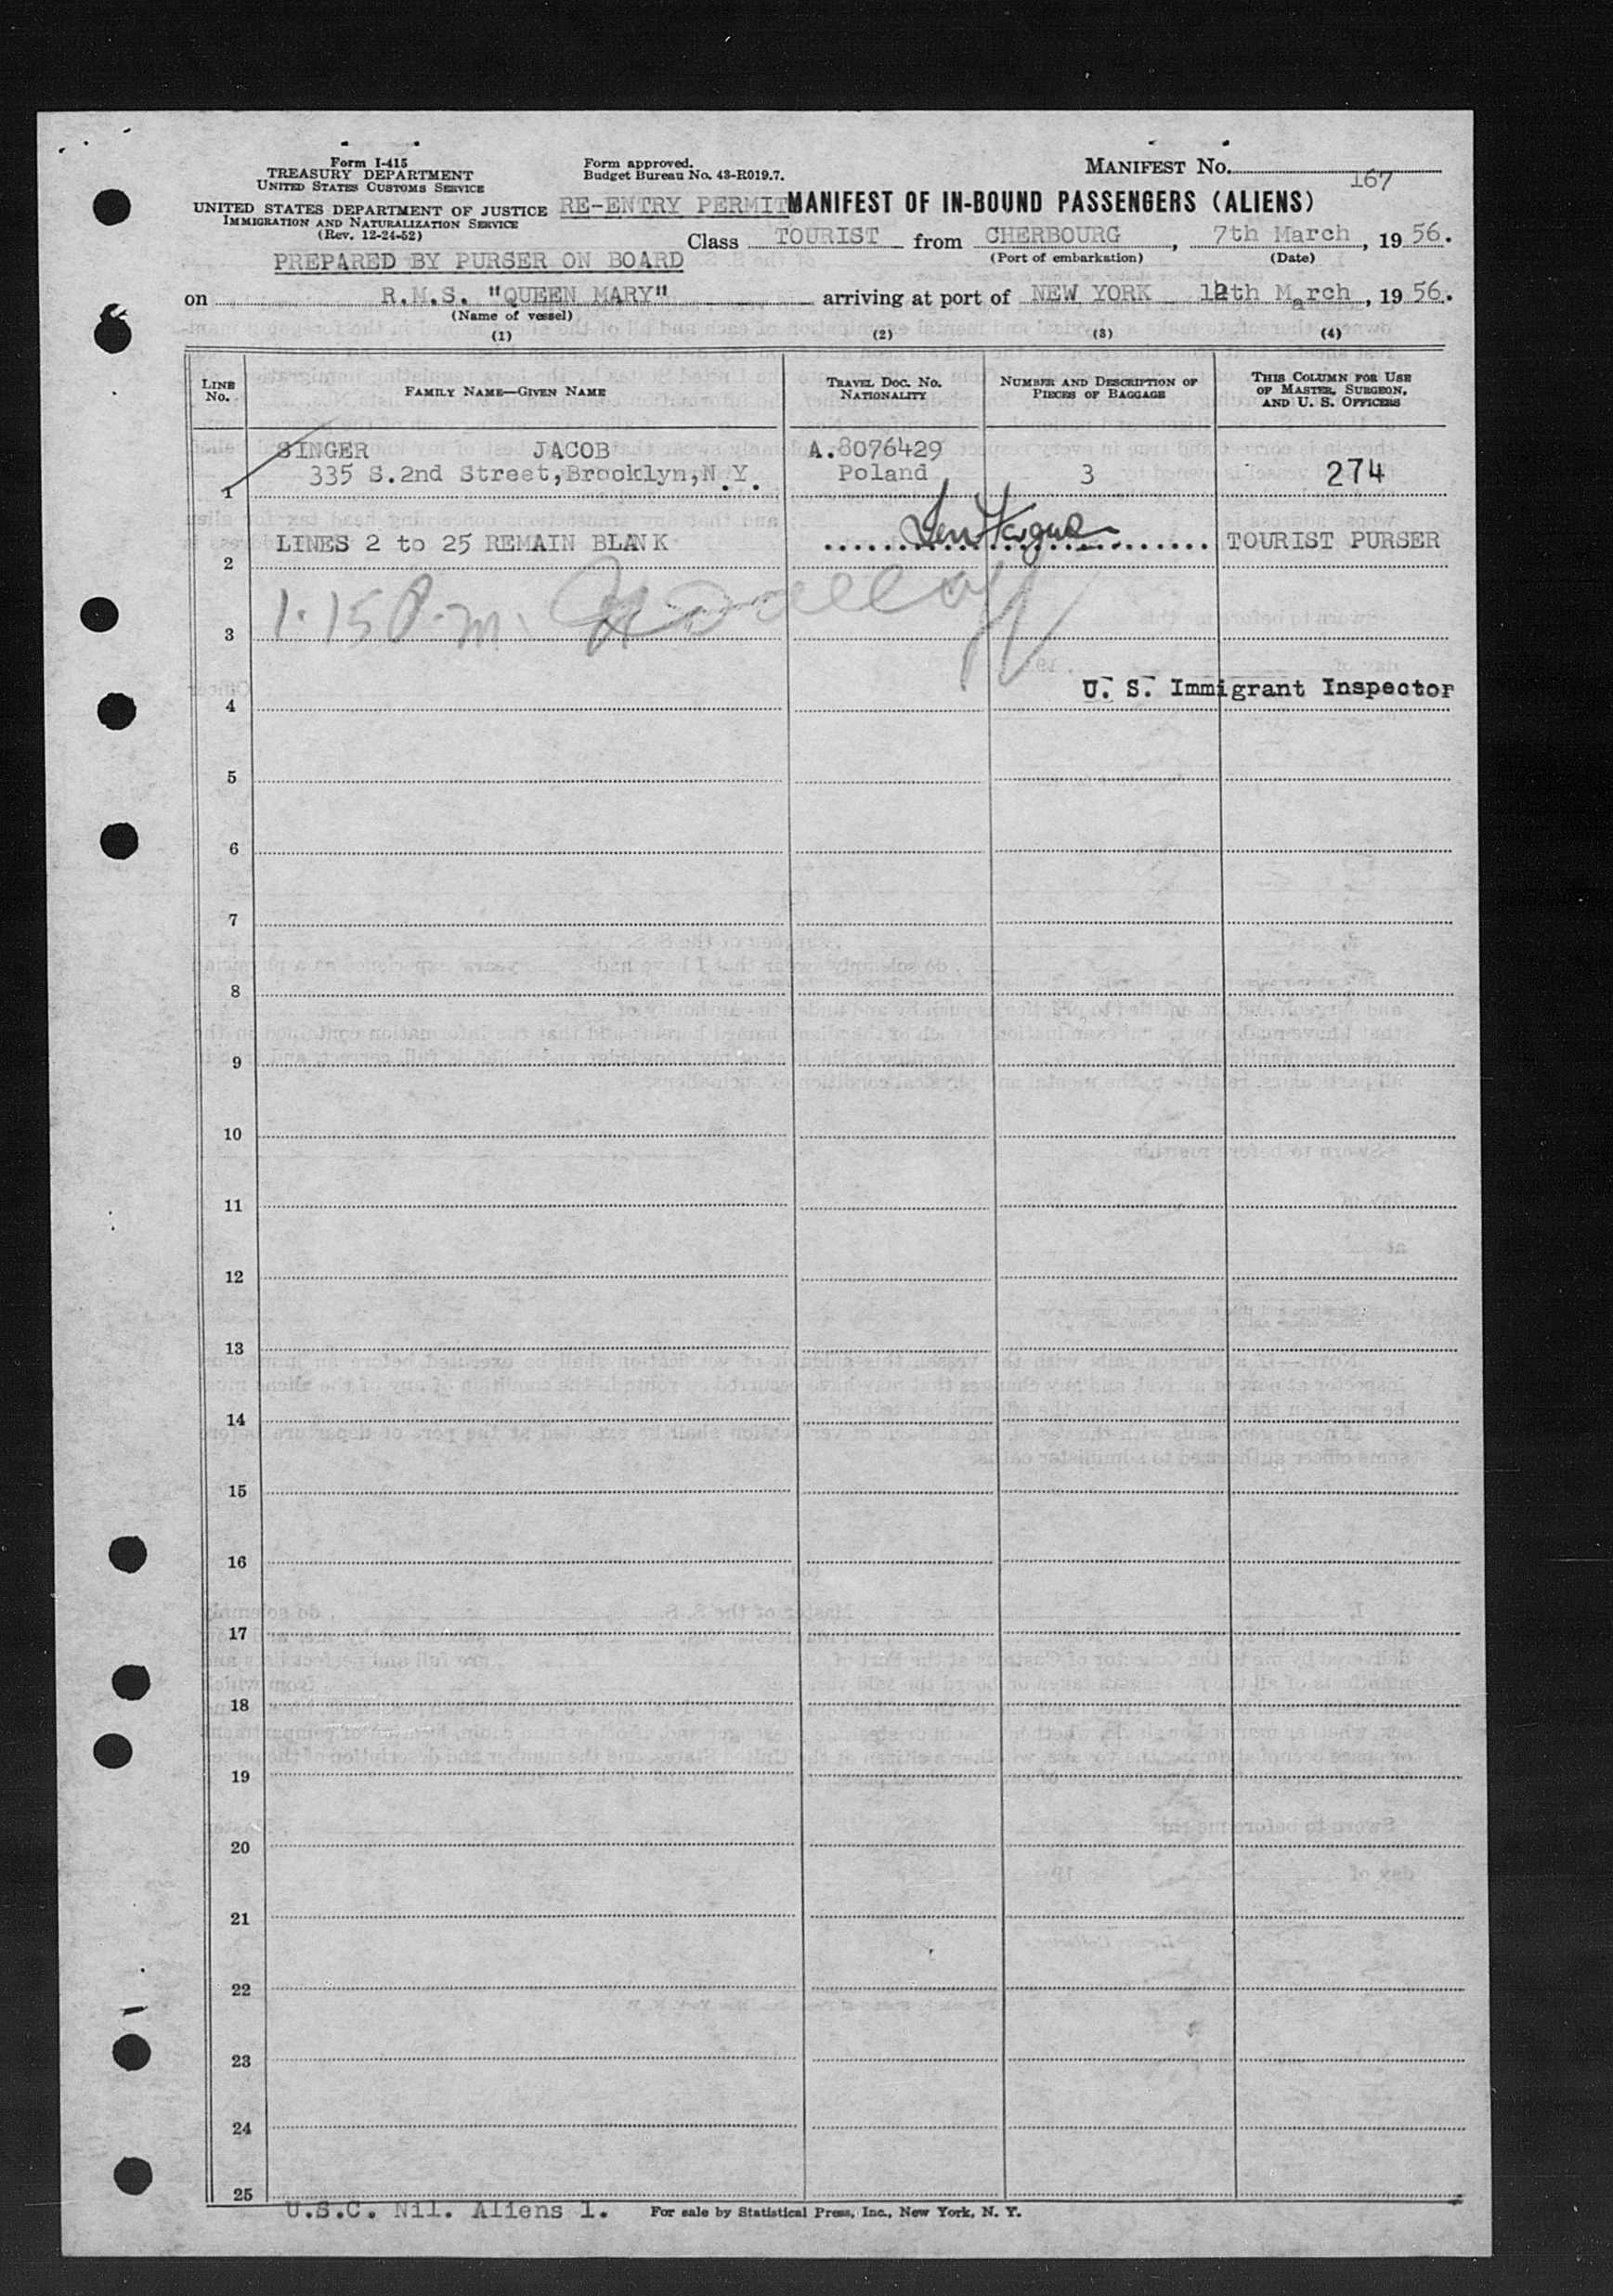 Form I-415
TREASURY DEPARTMENT
UNITED STATES CUSTOMS SERVICE
UNITED STATES DEPARTMENT OF JUSTICE
IMMIGRATION AND NATURALIZATION SERVICE
(Rev. 12-24-52)
Form approved.
Budget Bureau No. 43-R019.7.
MANIFEST No. 167
RE-ENTRY PERMIT MANIFEST OF IN-BOUND PASSENGERS (ALIENS)
Class TOURIST from CHERBOURG, 7th March, 1956.
(Port of embarkation) (Date)
PREPARED BY PURSER ON BOARD
on R.M.S. "QUEEN MARY" arriving at port of NEW YORK 12th March, 1956.
(Name of vessel)
(1) (2) (3) (4)
LINE No. FAMILY NAME—GIVEN NAME TRAVEL DOC. NO. NATIONALITY NUMBER AND DESCRIPTION OF PIECES OF BAGGAGE THIS COLUMN FOR USE OF MASTER, SURGEON, AND U. S. OFFICERS
SINGER JACOB A.8076429
1 335 S.2nd Street,Brooklyn,N.Y. Poland 3 274
2 LINES 2 to 25 REMAIN BLANK TOURIST PURSER
3 1.15 P.m.
4 U. S. Immigrant Inspector
5
6
7
8
9
10
11
12
13
14
15
16
17
18
19
20
21
22
23
24
25
U.S.C. Nil. Aliens 1. For sale by Statistical Press, Inc., New York, N. Y.